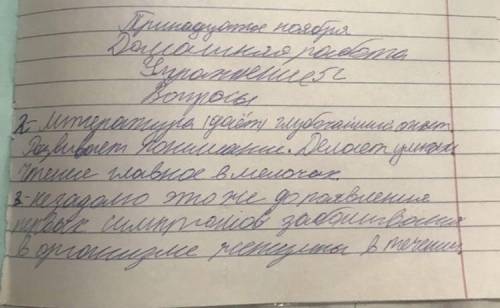 Тринадцатое ноября
Домашняя работа
Упражнение
Вопросы
Литература (даёт) глубочайший опыт.
Развивает понимание. Делает умным
Чтение главное в мелочах.
- незадолго это же до появления
первых симптомов заболевания
в организме женщины в течении